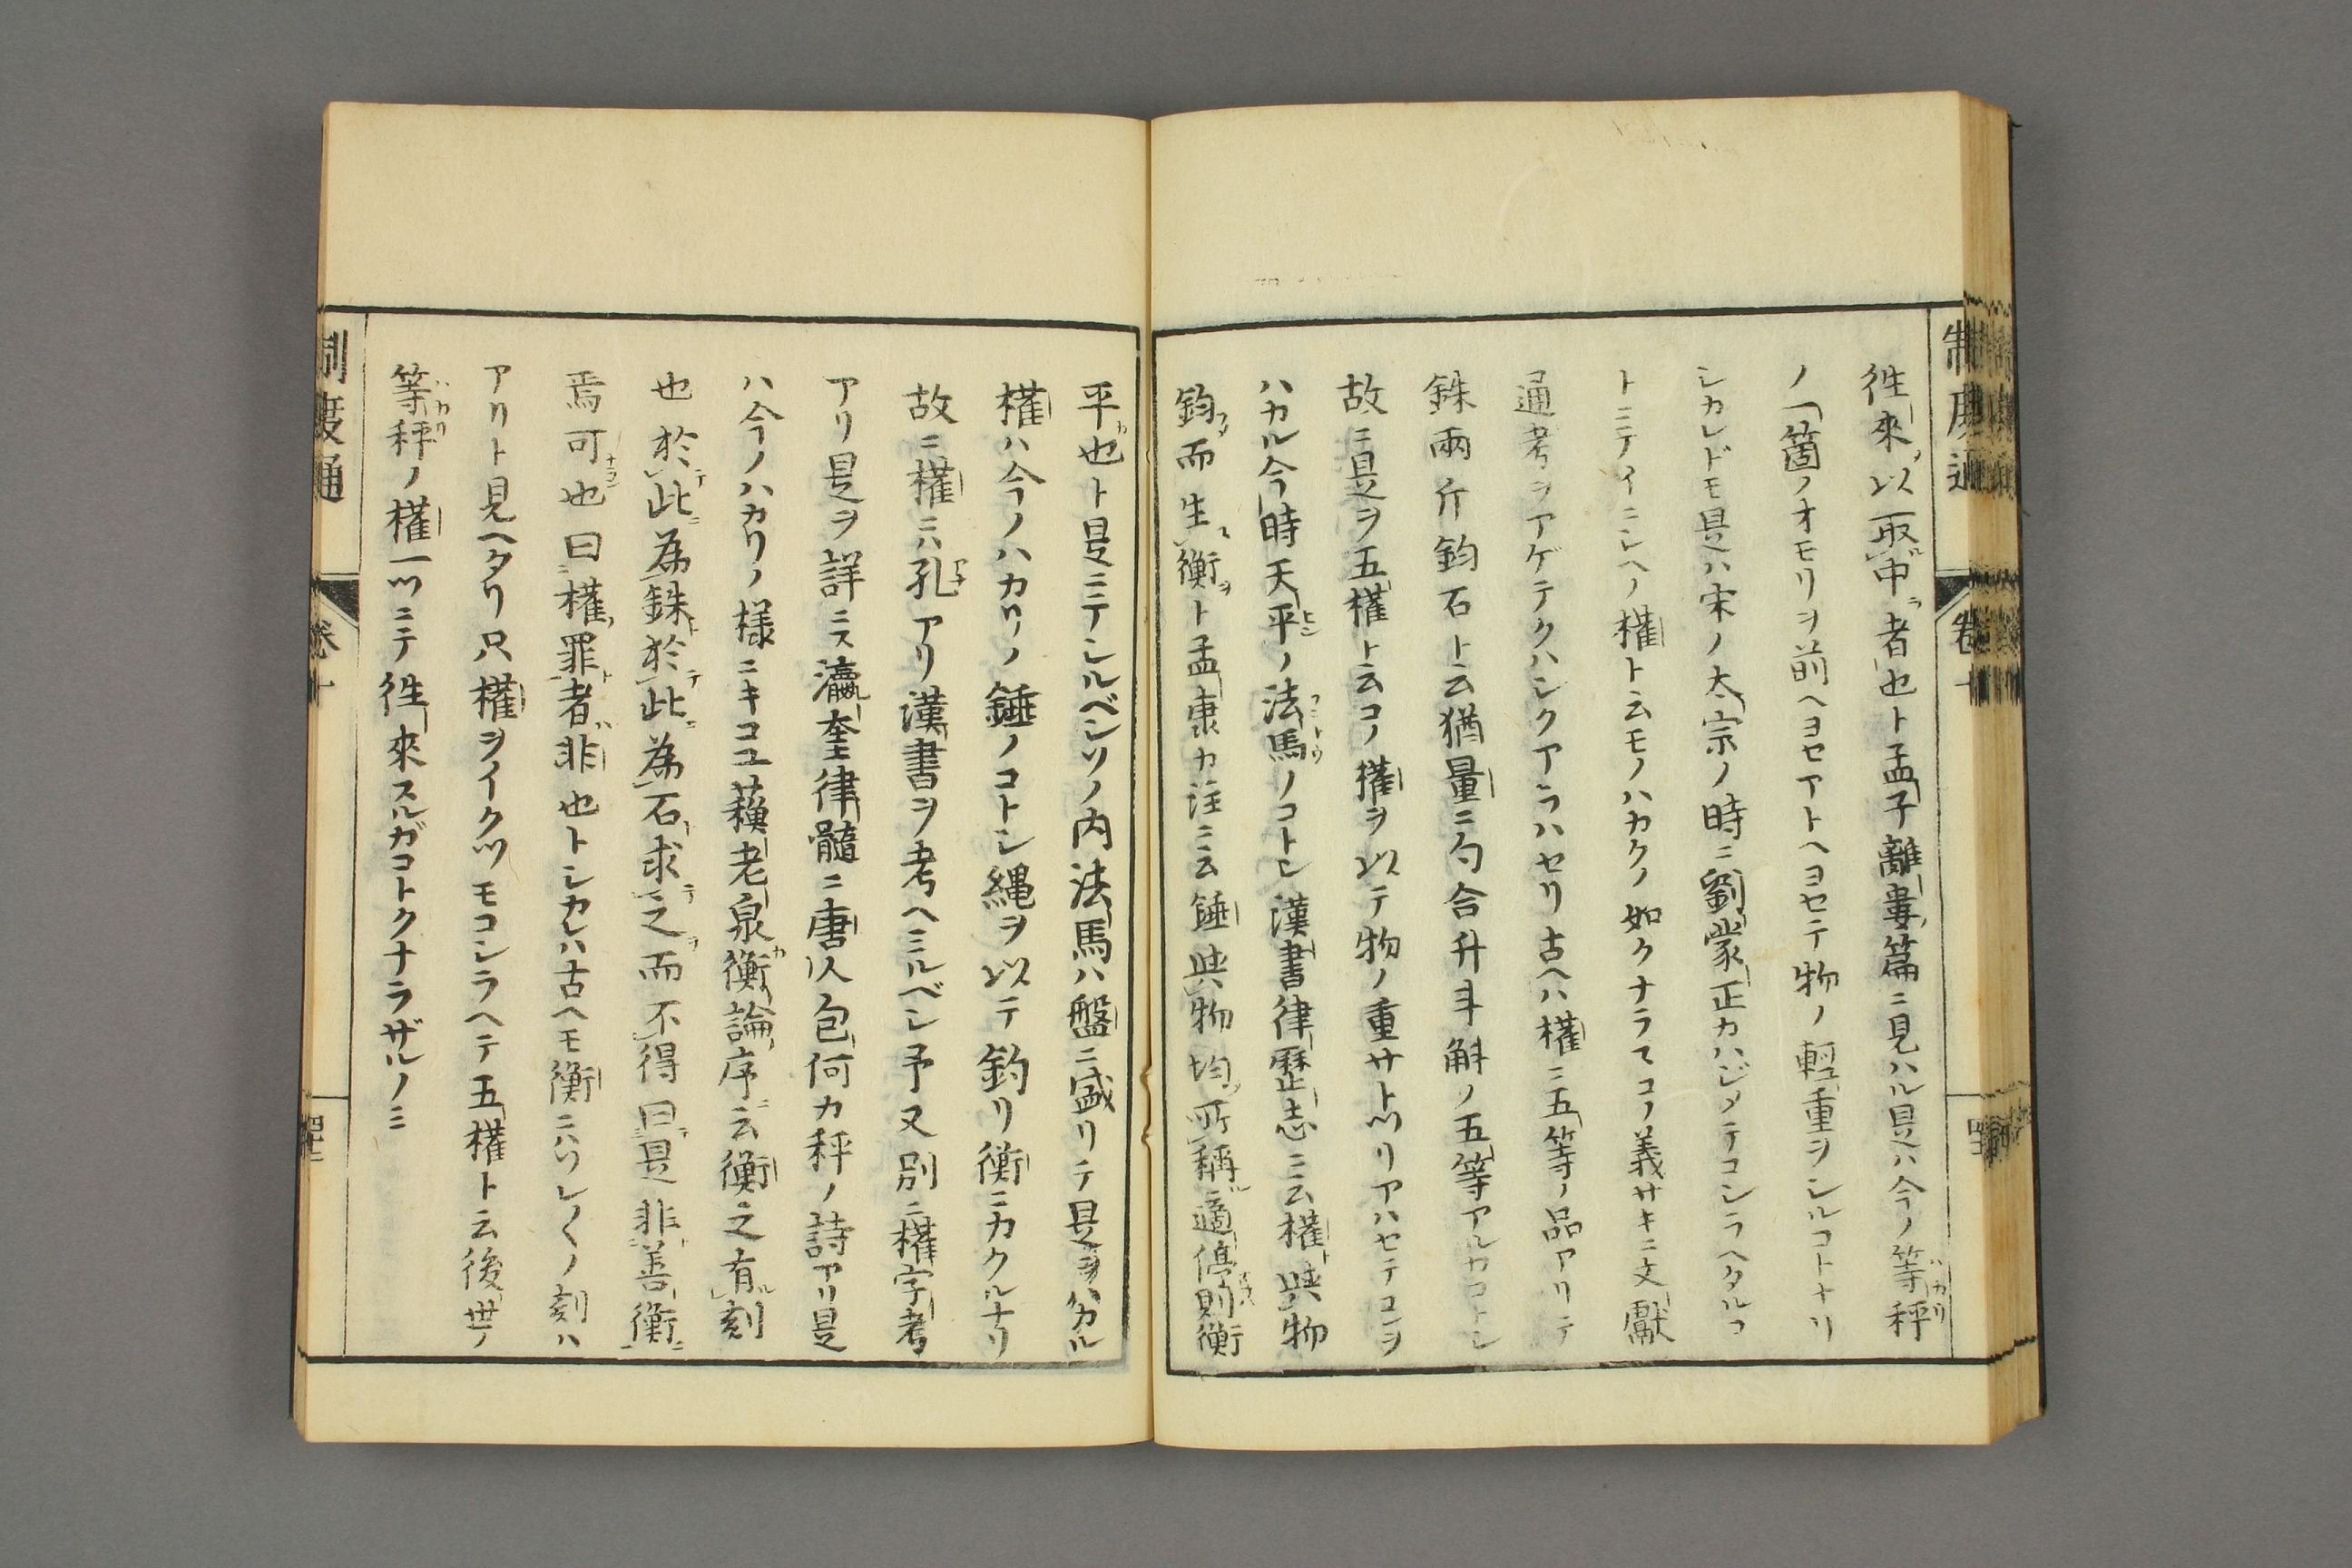 制度通 卷十
往來以取中者也ト孟子離婁篇ニ見ハル是ハ今ノ等秤
ノ一箇ノオモリヲ前ヘヨセアトヘヨセテ物ノ輕重ヲシルコトナリ
シカレドモ是ハ宋ノ太宗ノ時ニ劉蒙正カハジメテコシラヘタルコ
トニテイニシヘノ權ト云モノハカクノ如クナラスコノ義サキニ文獻
通考ヲアゲテクハシクアラハセリ古ヘハ權ニ五等ノ品アリテ
銖兩斤鈞石ト云猶量ニ勺合升斗斛ノ五等アルカコトシ
故ニ是ヲ五權ト云コノ權ヲ以テ物ノ重サトツリアハセテコレヲ
ハカル今時天平ノ法馬ノコトシ漢書律歷志ニ云權與物
鈞而生衡ト孟康カ注ニ云錘與物均所稱適停則衡
平也ト是ニテシルベシソノ内法馬ハ盤ニ盛リテ是ヲハカル
權ハ今ノハカリノ錘ノコトシ縄ヲ以テ釣リ衡ニカクルナリ
故ニ權ニハ孔アリ漢書ヲ考ヘミルベシ予又別ニ權字考
アリ是ヲ詳ニス瀛奎律髓ニ唐人包何カ秤ノ詩アリ是
ハ今ノハカリノ様ニキコユ蘓老泉衡論序ニ云衡之有刻
也於此為銖於此為石求之而不得曰是非善衡
焉可也曰權罪者非也トシカレハ古ヘモ衡ニハソレ〱ノ刻ハ
アリト見ヘタリ只權ヲイクツモコシラヘテ五權ト云後世ノ
等秤ノ權一ツニテ往來スルガコトクナラザルノミ
制度通 卷十